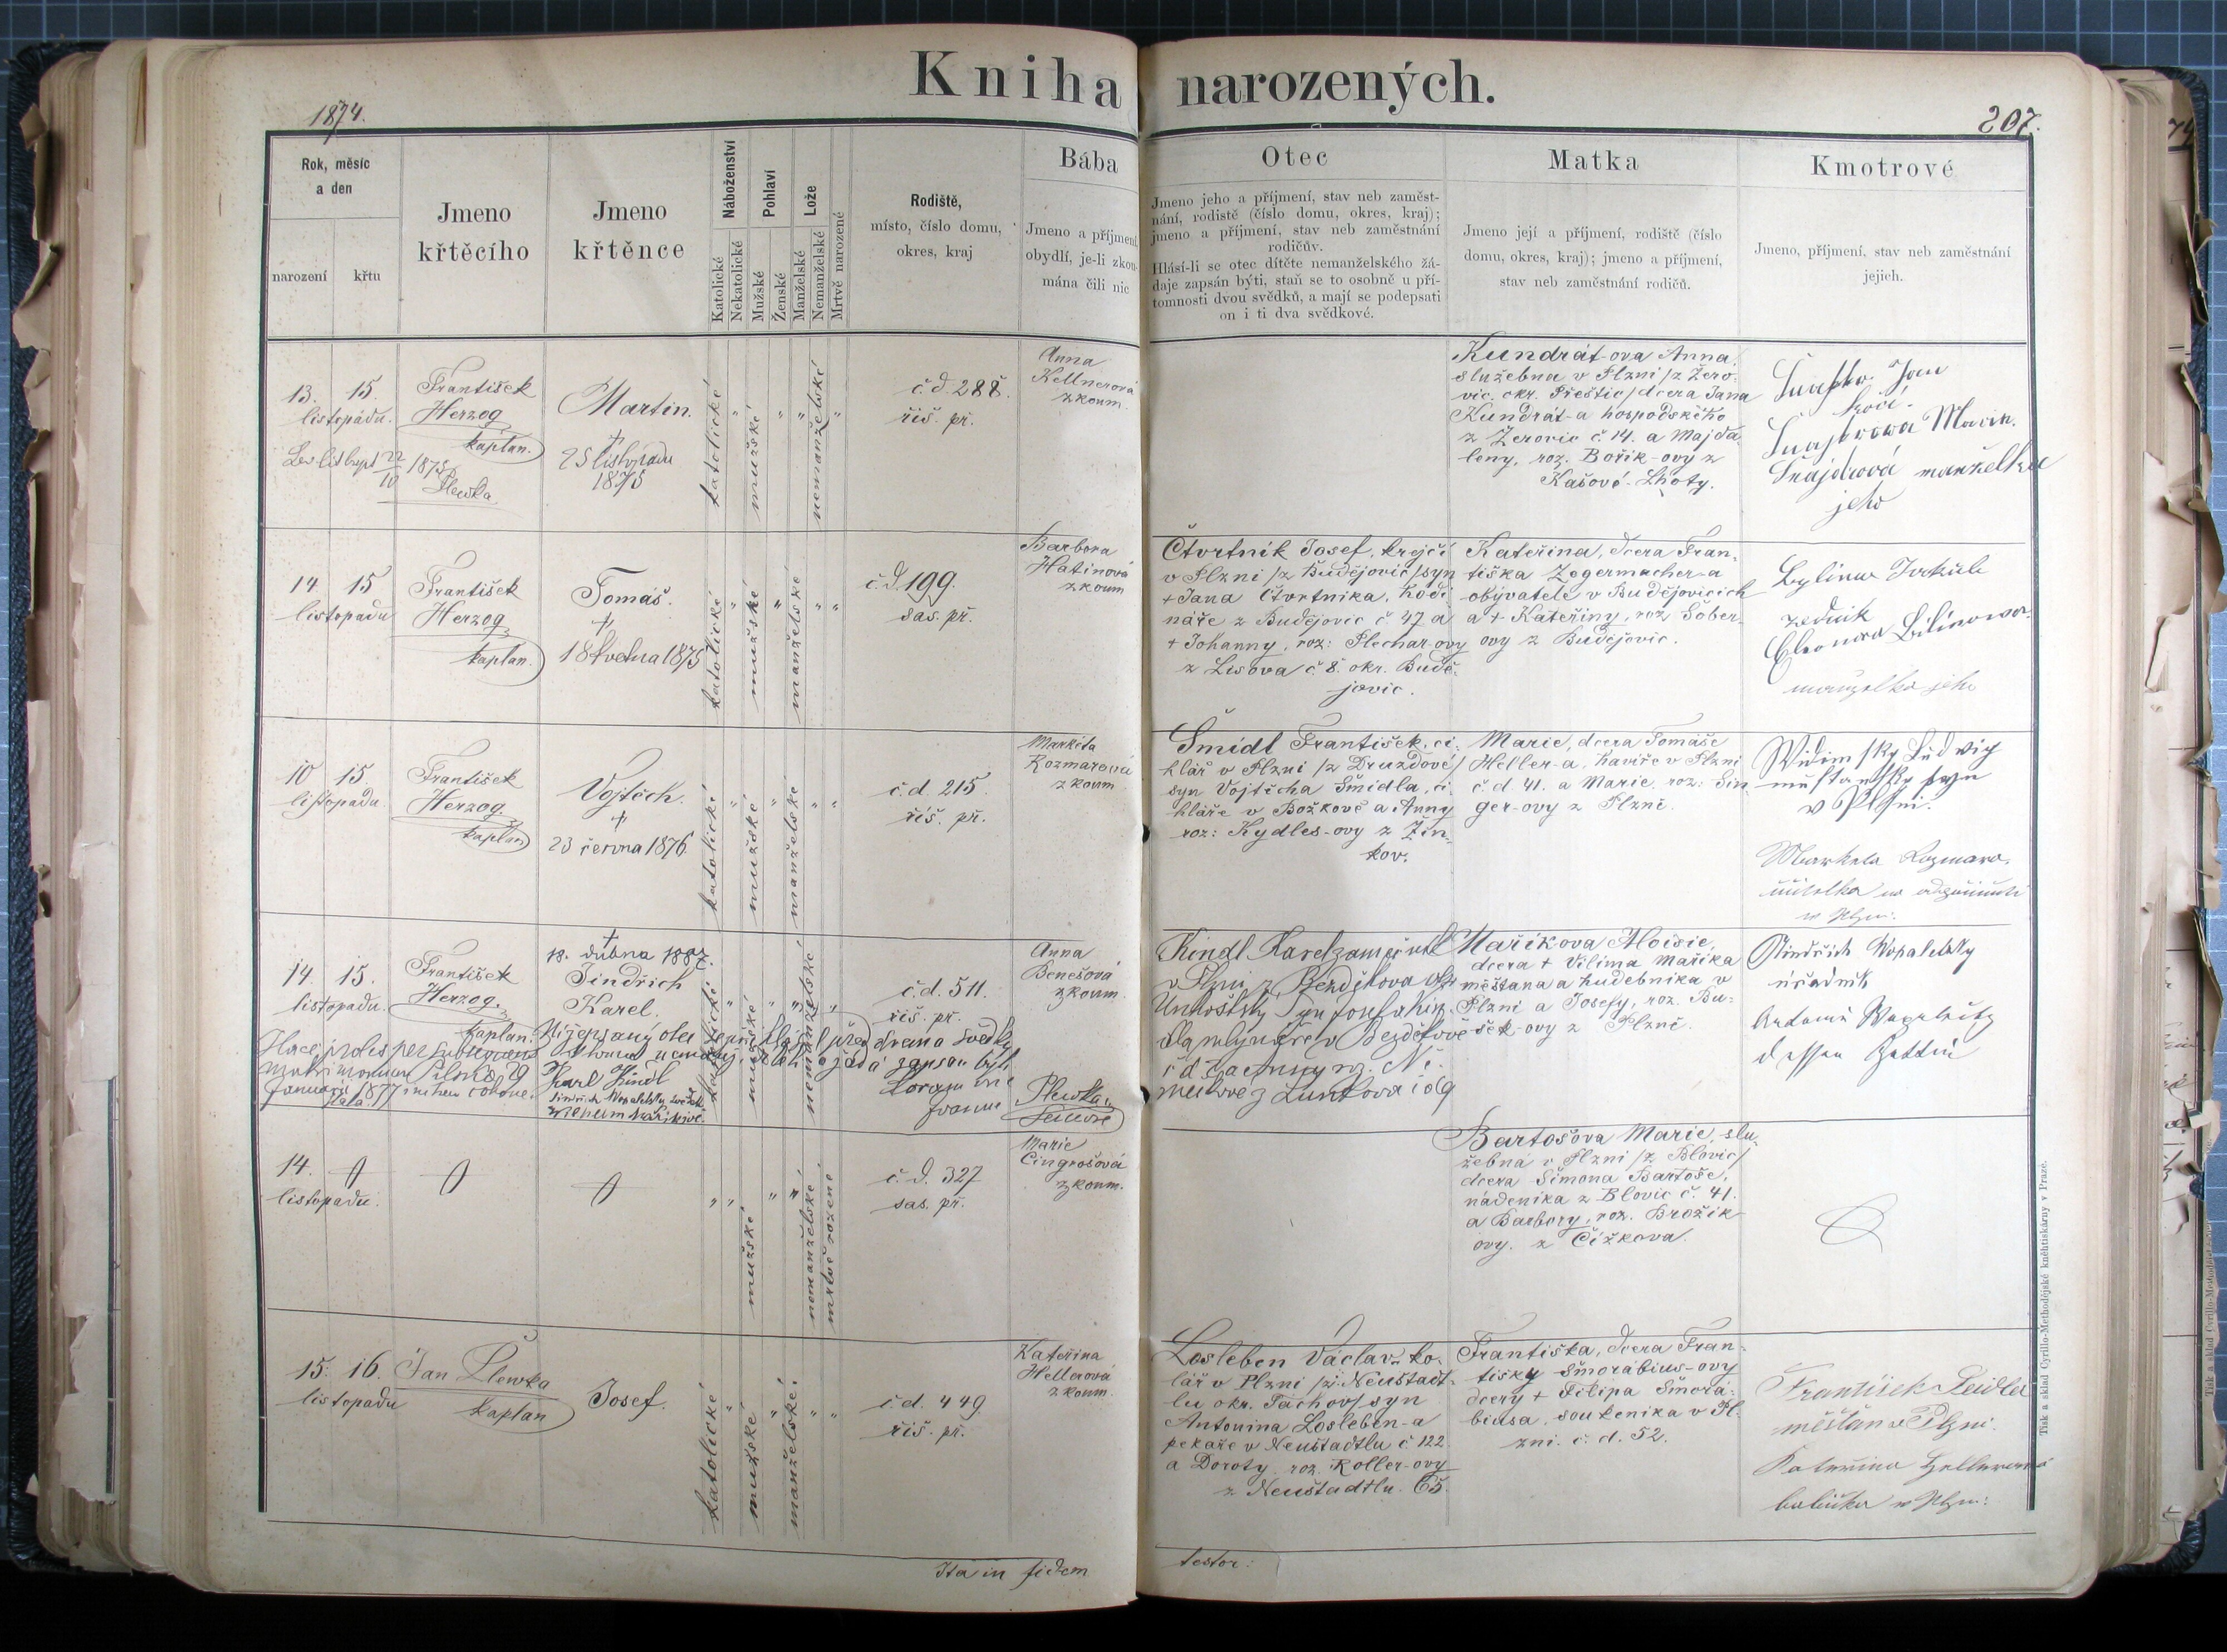 Kniha narozených.
1874.
207.
Rok, měsíc
a den
narození
křtu
Jmeno
křtěcího
Jmeno
křtěnce
Náboženství
Katolické
Nekatolické
Pohlaví
Mužské
Ženské
Lože
Manželské
Nemanželské
Mrtvě narozené
Rodiště,
místo, číslo domu,
okres, kraj
Bába
Jmeno a příjmení,
obydlí, je-li zkou-
mána čili nic
Otec
Jmeno jeho a příjmení, stav neb zaměst-
nání, rodiště (číslo domu, okres, kraj);
jmeno a příjmení, stav neb zaměstnání
rodičův.
Hlásí-li se otec dítěte nemanželského žá-
daje zapsán býti, staň se to osobně u pří-
tomnosti dvou svědků, a mají se podepsati
on i ti dva svědkové.
Matka
Jmeno její a příjmení, rodiště (číslo
domu, okres, kraj); jmeno a příjmení,
stav neb zaměstnání rodičů.
Kmotrové
Jmeno, příjmení, stav neb zaměstnání
jejich.
13. 15.
listopadu.
1875
Plewka
František
Herzog
kaplan.
Martin.
†
25 listopadu
1875
katolické
"
mužské
"
"
nemanželské
"
č. d. 288.
říš. př.
Anna
Kellnerová
zkoum.
Kundrát-ova Anna,
služebna v Plzni /z Žero-
vic, okr. Přeštic/ dcera Jana
Kundrát-a hospodského
z Žerovic č. 14. a Majda-
leny, roz. Bořik-ovy z
Kašové-Lhoty.
Jan
kočí.
Šnajdrová manželka
jeho
14 15
listopadu
František
Herzog
kaplan.
Tomáš.
†
18 května 1875
katolické
"
mužské
"
manželské
"
"
č. d. 199.
sas. př.
Barbora
Hatinová
zkoum
Čtvrtník Josef, krejčí
v Plzni /z Budějovic/ syn
+ Jana Čtvrtníka, hodi-
náře z Budějovic č. 47 a
+ Johanny, roz: Plechar-ovy
z Lusova č. 8. okr. Budě-
jovic.
Kateřina, dcera Fran-
tiška Zegermacher-a
obyvatele v Budějovicích
a + Kateřiny, roz. Šober-
ovy z Budějovic.
zedník
Eleonora
manželka jeho
10 15.
listopadu.
František
Herzog.
kaplan
Vojtěch.
†
23 června 1876
katolické
"
mužské
"
manželské
"
"
č. d. 215.
říš. př.
Markéta
Kozmarová
zkoum
Šmídl František, ci-
hlář v Plzni /z Druzdové/
syn Vojtěcha Šmídla, ci-
hláře v Božkově a Anny
roz: Kydles-ovy z Žin-
kov.
Marie, dcera Tomáše
Heller-a, havíře v Plzni
č. d. 41. a Marie, roz: Sin-
ger-ovy z Plzně.
Ludwig
syn
v Plzni.
14. 15.
listopadu.
František
Herzog.
kaplan.
†
18. dubna 1887.
Jindřich
Karel.
katolické
"
mužské
"
"
nemanželské
"
č. d. 511.
říš. př.
Anna
Benešová
zkoum.
Haec proles per subsequens
matrimonium 29
Januarii 1877
Karl Kindl
Plewka
Kindl Karel
v Plzni z Bezděkova
Mařikova Aloisie,
dcera + Vilíma Mařika
měšťana a hudebníka v
Plzni a Josefy, roz. Bu-
šek-ovy z Plzně.
Jindřich
úředník
14.
listopadu.
"
"
mužské
"
"
nemanželské
mrtvě rozené
č. d. 327
sas. př.
Marie
Cingrošová
zkoum.
Bartošova Marie, slu-
žebná v Plzni /z Blovic/
dcera Šimona Bartoše,
nádeníka z Blovic č. 41.
a Barbory, roz. Brožik-
ovy. z Čížkova.
15. 16.
listopadu
Jan Plewka
kaplan
Josef.
katolické
"
mužské
"
manželské.
"
"
č. d. 449
říš. př.
Kateřina
Hellerová
zkoum.
Losleben Václav, ko-
lář v Plzni /z Neustadt-
lu okr. Tachov/ syn
Antonina Losleben-a
pekaře v Neustadtlu č 122
a Doroty roz. Koller-ovy
z Neustadtlu. 65.
Františka, dcera Fran-
tišky Šmorabius-ovy
dcery + Filipa Šmora-
biusa, soukeníka v Pl-
zni. č. d. 52.
František
měšťan v Plzni.
Kateřina Hellerová
babička v Plzni:
Ita in fidem
testor:
Tisk a sklad Cyrillo-Methodějské knihtiskárny v Praze.